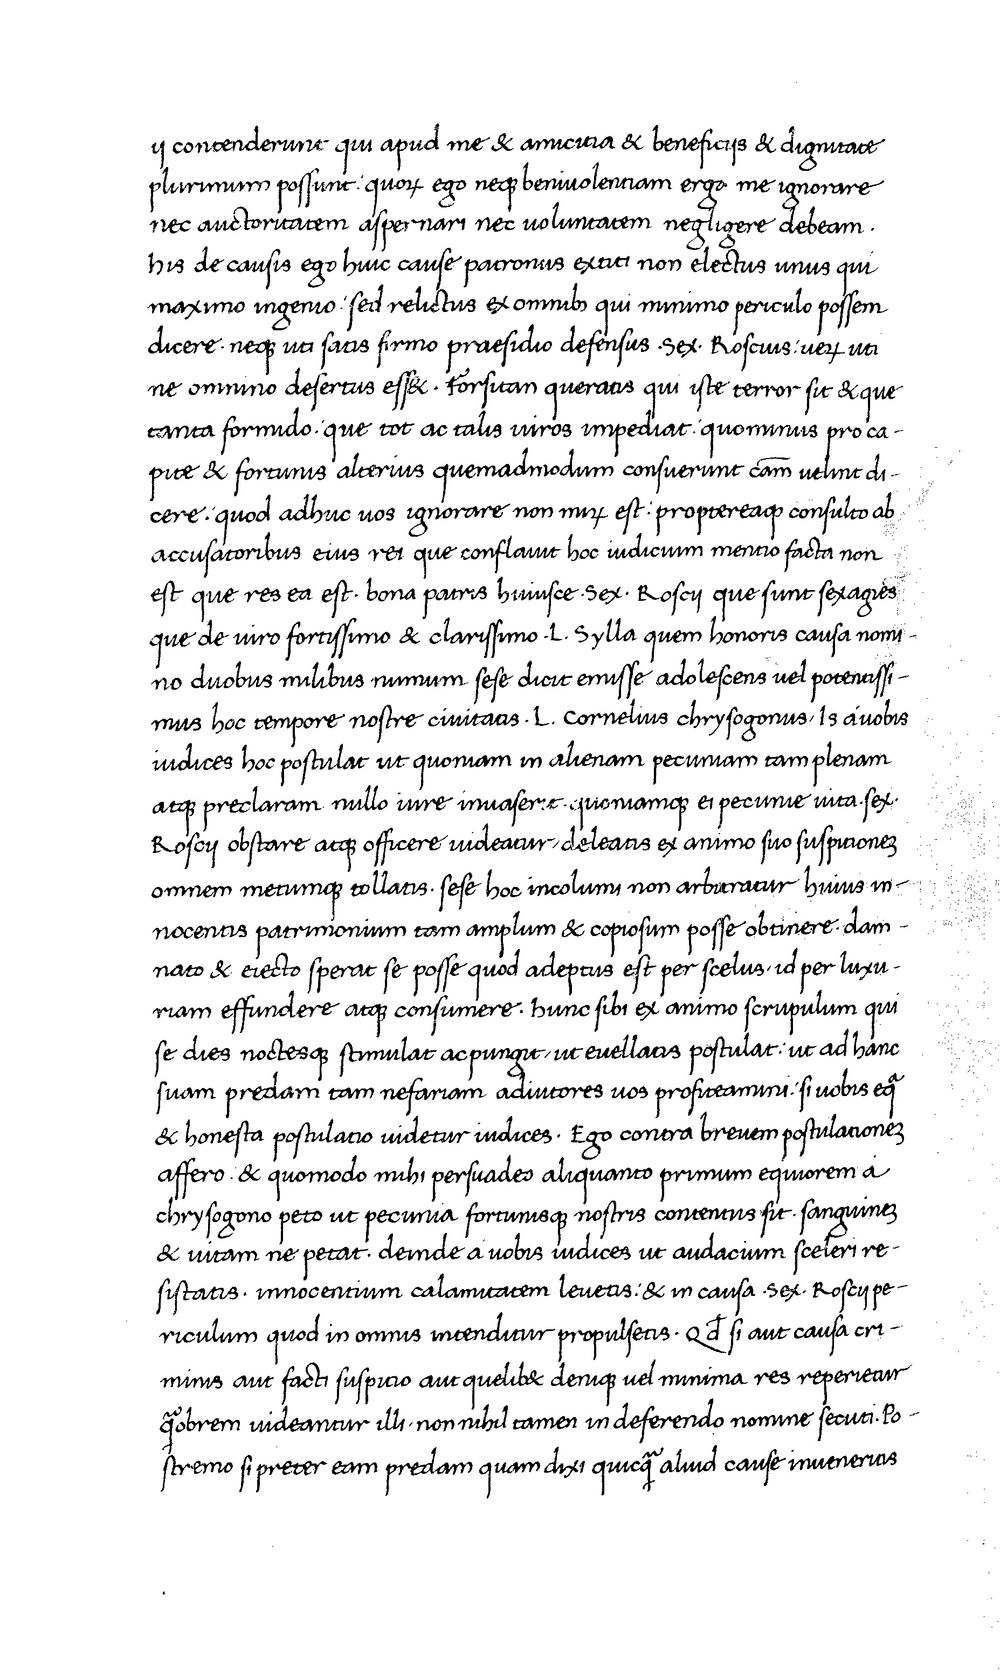 ij contenderunt qui apud me & amicitia & beneficijs & dignitate
plurimum possunt: quoꝝ ego neqꝫ beniuolentiam ergo me ignorare
nec auctoritatem aspernari nec uoluntatem negligere debeam.
his de causis ego huic cause patronus extiti non electus unus qui
maximo ingenio: sed relictus ex omnibꝫ qui minimo periculo possem
dicere. neqꝫ uti satis firmo praesidio defensus .Sex. Roscius: ueꝝ uti
ne omnino desertus ess&. Forsitan queratis qui iste terror sit & que
tanta formido: que tot ac talis uiros impediat: quominus pro ca-
pite & fortunis alterius quemadmodum consuerunt cām uelint di-
cere: quod adhuc uos ignorare non miꝝ est: proptereaqꝫ consulto ab
accusatoribus eius rei que conflauit hoc iudicium mentio facta non
est que res ea est. bona patris huiusce .Sex. Roscij que sunt sexagies
que de uiro fortissimo & clarissimo .L. Sylla quem honoris causa nomi-
no duobus milibus numum sese dicit emisse adolescens uel potentissi-
mus hoc tempore nostre ciuitatis .L. Cornelius chrysogonus. Is a uobis
iudices hoc postulat ut quoniam in alienam pecuniam tam plenam
atqꝫ preclaram nullo iure inuaserit. quoniamqꝫ ei pecunie uita .sex.
Roscij obstare atqꝫ officere uideatur, deleatis ex animo suo suspitioneꝫ
omnem metumqꝫ tollatis. sese hoc incolumi non arbitratur huius in-
nocentis patrimonium tam amplum & copiosum posse obtinere. dam-
nato & eiecto sperat se posse quod adeptus est per scelus, id per luxu-
riam effundere atqꝫ consumere. hunc sibi ex animo scrupulum qui
se dies noctesqꝫ stimulat ac pungit, ut euellatis postulat: ut ad hanc
suam predam tam nefariam adiutores uos profiteamini: si uobis eq̄
& honesta postulatio uidetur iudices. Ego contra breuem postulationeꝫ
affero. & quomodo mihi persuadeo aliquanto primum equiorem a
chrysogono peto ut pecunia fortunisqꝫ nostris contentus sit. sanguineꝫ
& uitam ne petat. deinde a uobis iudices ut audacium sceleri re-
sistatis. innocentium calamitatem leuetis: & in causa .Sex. Roscij pe-
riculum quod in omnis intenditur propulsetis. Qd̄ si aut causa cri-
minis aut facti suspitio aut quelib& deniqꝫ uel minima res reperietur
q̄obrem uideantur illi. non nihil tamen in deferendo nomine secuti. Po-
stremo si preter eam predam quam dixi quicq̄ aliud cause inueneritis